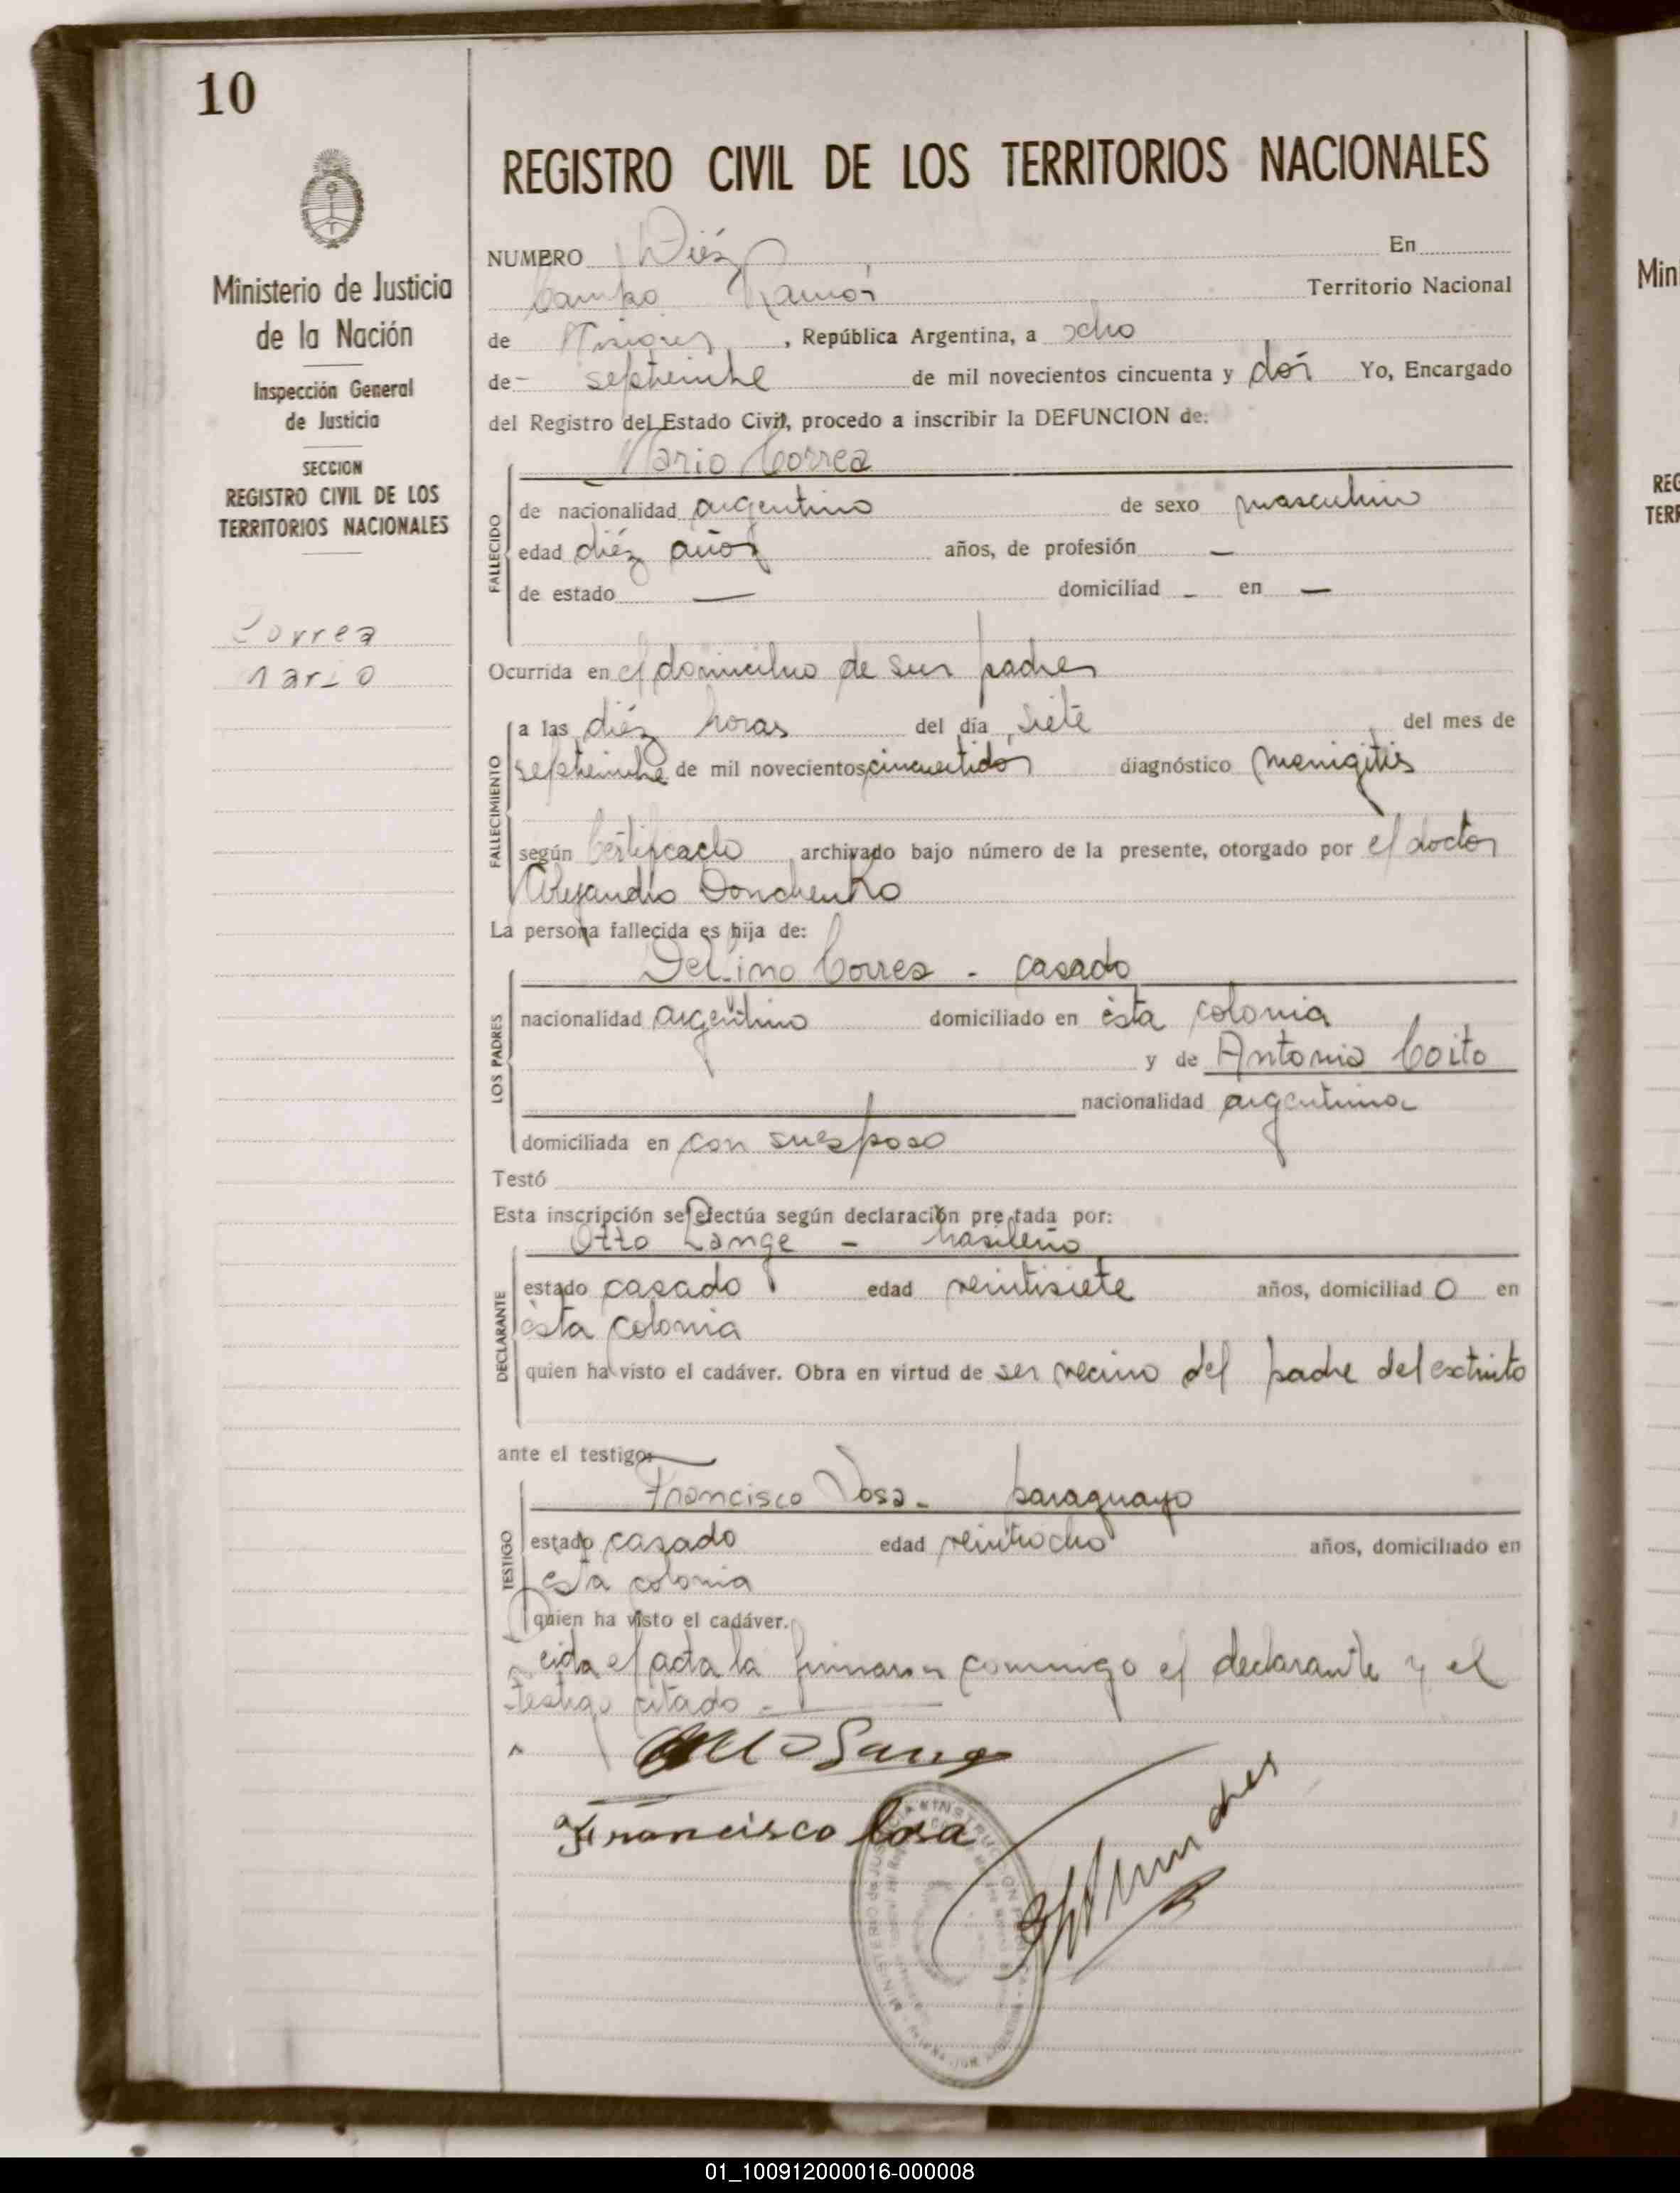 10
Ministerio de Justicia
de la Nación
Inspección General
de Justicia
SECCION
REGISTRO CIVIL DE LOS
TERRITORIOS NACIONALES
Correa
Mario
REGISTRO CIVIL DE LOS TERRITORIOS NACIONALES
NUMERO Diéz En
Campo Ramón Territorio Nacional
de Misiones, República Argentina, a ocho
de septiembre de mil novecientos cincuenta y dos Yo, Encargado
del Registro del Estado Civil, procedo a inscribir la DEFUNCION de:
Mario Correa
FALLECIDO
de nacionalidad argentino de sexo masculino
edad diéz años años, de profesión —
de estado — domiciliad - en —
Ocurrida en el domicilio de sus padres
FALLECIMIENTO
a las diéz horas del día siete del mes de
septiembre de mil novecientos cincuentidos diagnóstico menigitis
según Certificado archivado bajo número de la presente, otorgado por el doctor
Alejandro Donchenko
La persona fallecida es hija de:
LOS PADRES
Delfino Correa - casado
nacionalidad argentino domiciliado en ésta colonia
y de Antonia Coito
nacionalidad argentina
domiciliada en con su esposo
Testó
Esta inscripción se efectúa según declaración pre tada por:
DECLARANTE
Otto Lange - brasileño
estado casado edad veintisiete años, domiciliad o en
ésta colonia
quien ha visto el cadáver. Obra en virtud de ser vecino del padre del extinto
ante el testigo:
TESTIGO
Francisco Sosa - paraguayo
estado casado edad veintiocho años, domiciliado en
esta colonia
quien ha visto el cadáver.
el acta la firmaron conmigo el declarante y el
testigo citado -
Otto Lange
Francisco Sosa
01_100912000016-000008